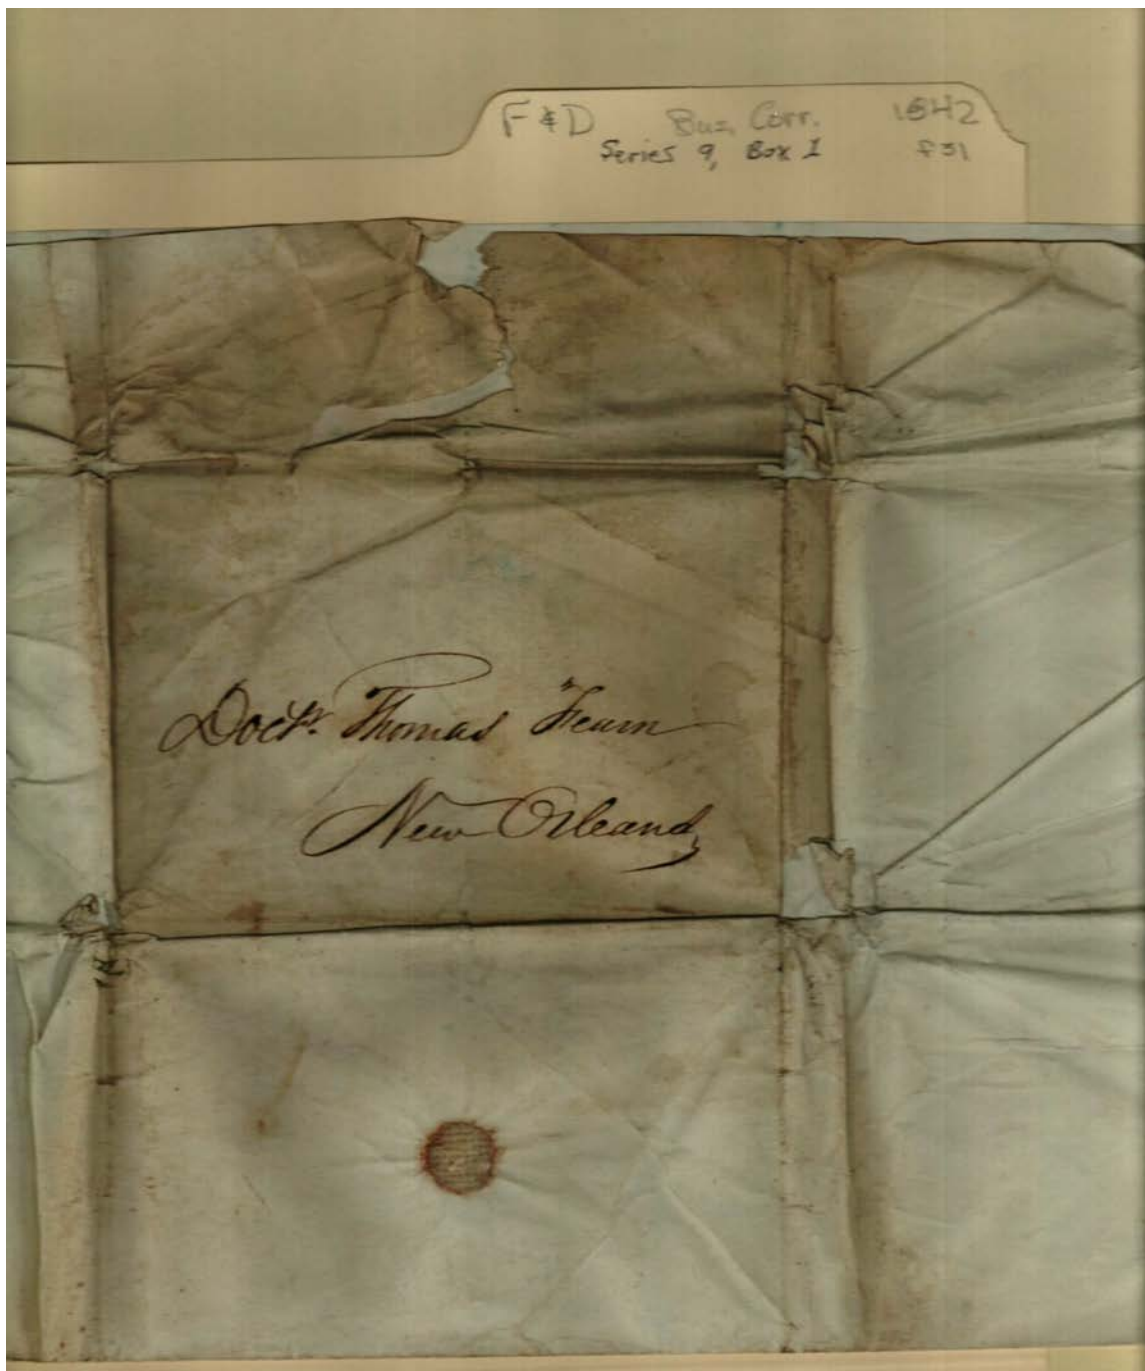 F & D Bus. Corr. 1842
Series 9, Box 1 F31
Doctr. Thomas Fearn
New Orleans